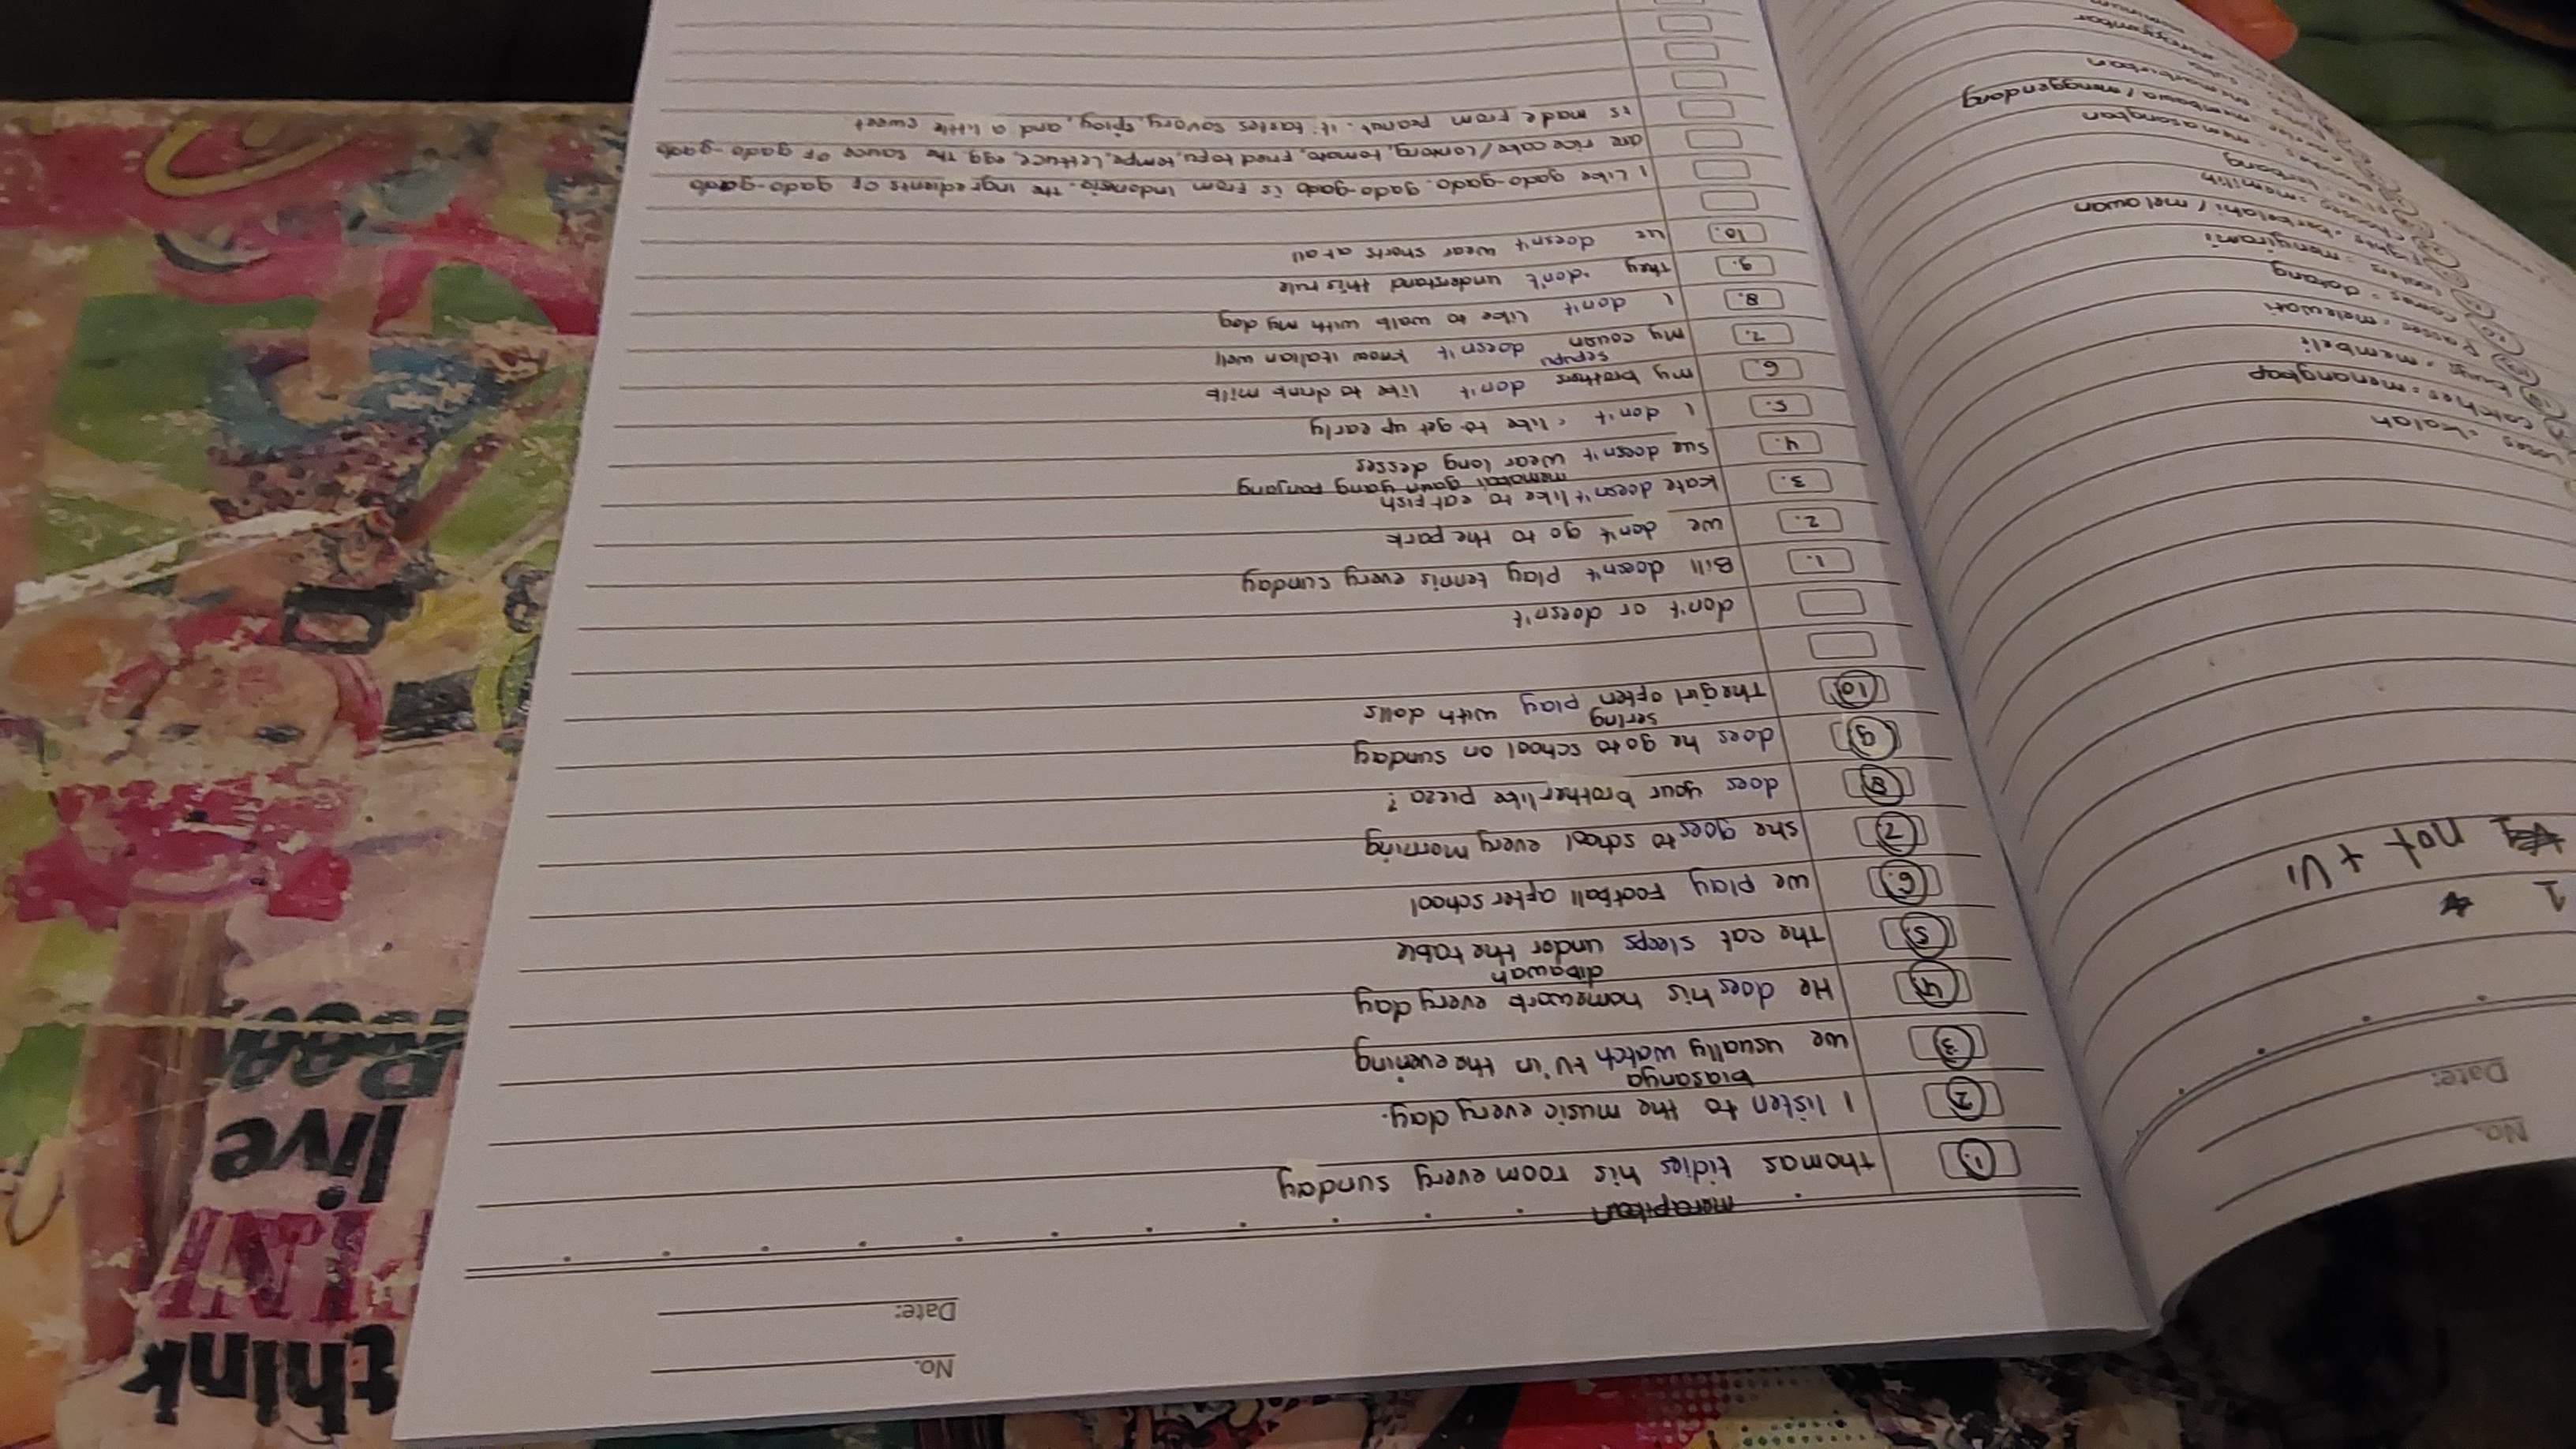 No.
Date:
merapikan
1. thomas tidies his room every sunday
2. I listen to the music every day.
biasanya
3. we usually watch tv in the evening
4. He does his homework every day
dibawah
5. The cat sleeps under the table
6. we play Football after school
7. she goes to school every Morning
8. does your brother like pizza?
9. does he go to school on sunday
sering
10. The girl often play with dolls
don't or doesn't
1. Bill doesn't play tennis every sunday
2. we don't go to the park
3. kate doesn't like to eat Fish
memakai gaun yang panjang
4. sue doesn't wear long desses
5. I don't like to get up early
6. my brothers don't like to drink milk
sepupu
7. My cousn doesn't know italian well
8. I don't like to walk with my dog
9. They don't understand this rule
10. we doesn't wear shorts at all
I Like gado-gado. gado-gado is from Indonesia. the ingredients of gado-gado
are rice cake/Lontong, tomato, Fried tofu, tempe, Lettuce, egg. the sauce of gado-gado
is made from peanut. it tastes savory, spicy, and a little sweet
No.
Date:
1
not + V1
loses = kalah
catches = menangkap
buys = membeli
Passes = melewati
comes = datang
waters = menyirami
Fights = berkelahi / melawan
= memilih
Flies = terbang
= memasangkan
= membawa / menggendong
think
live